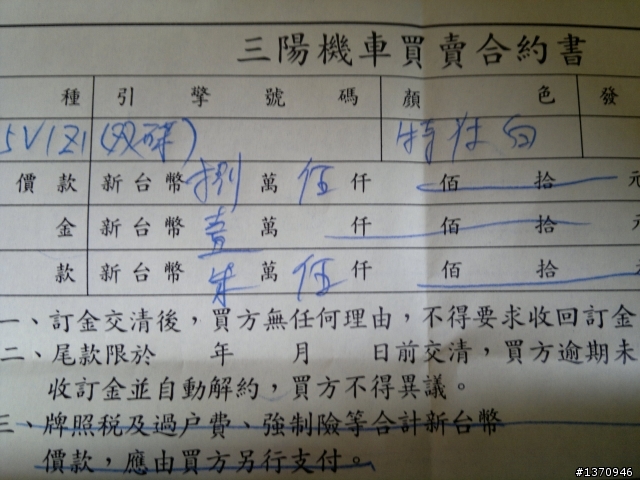 三陽機車買賣合約書
種 引擎號碼 顏色 發
(双碟) 特仕白
價款 新台幣 捌 萬 伍 仟 佰 拾 元
金 新台幣 壹 萬 仟 佰 拾 元
款 新台幣 柒 萬 伍 仟 佰 拾 元
一、訂金交清後,買方無任何理由,不得要求收回訂金
二、尾款限於 年 月 日前交清,買方逾期未
收訂金並自動解約,買方不得異議。
三、牌照税及過户費、強制險等合計新台幣
價款,應由買方另行支付。
#1370946